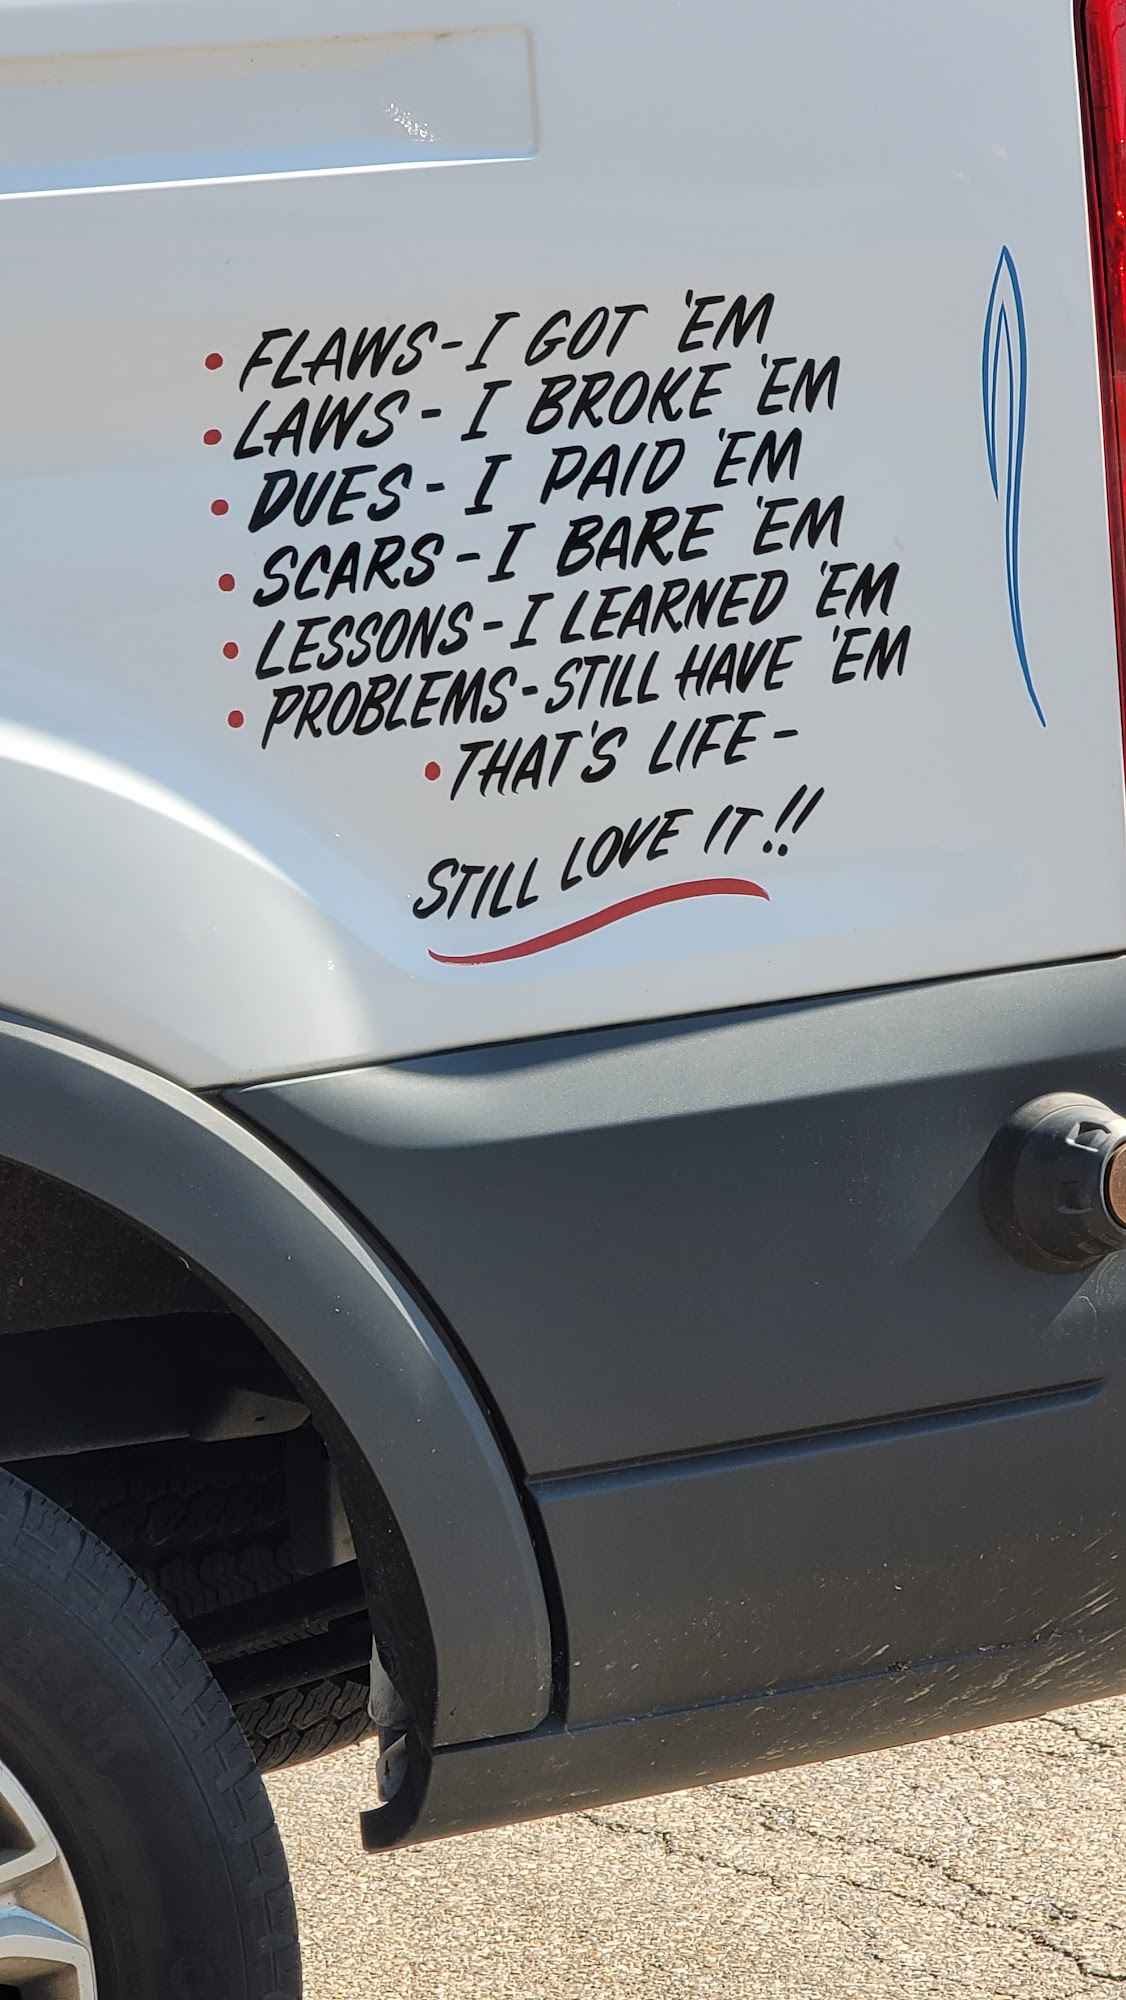 • FLAWS - I GOT 'EM
• LAWS - I BROKE 'EM
• DUES - I PAID 'EM
• SCARS - I BARE 'EM
• LESSONS - I LEARNED 'EM
• PROBLEMS - STILL HAVE 'EM
• THAT'S LIFE -
STILL LOVE IT!!